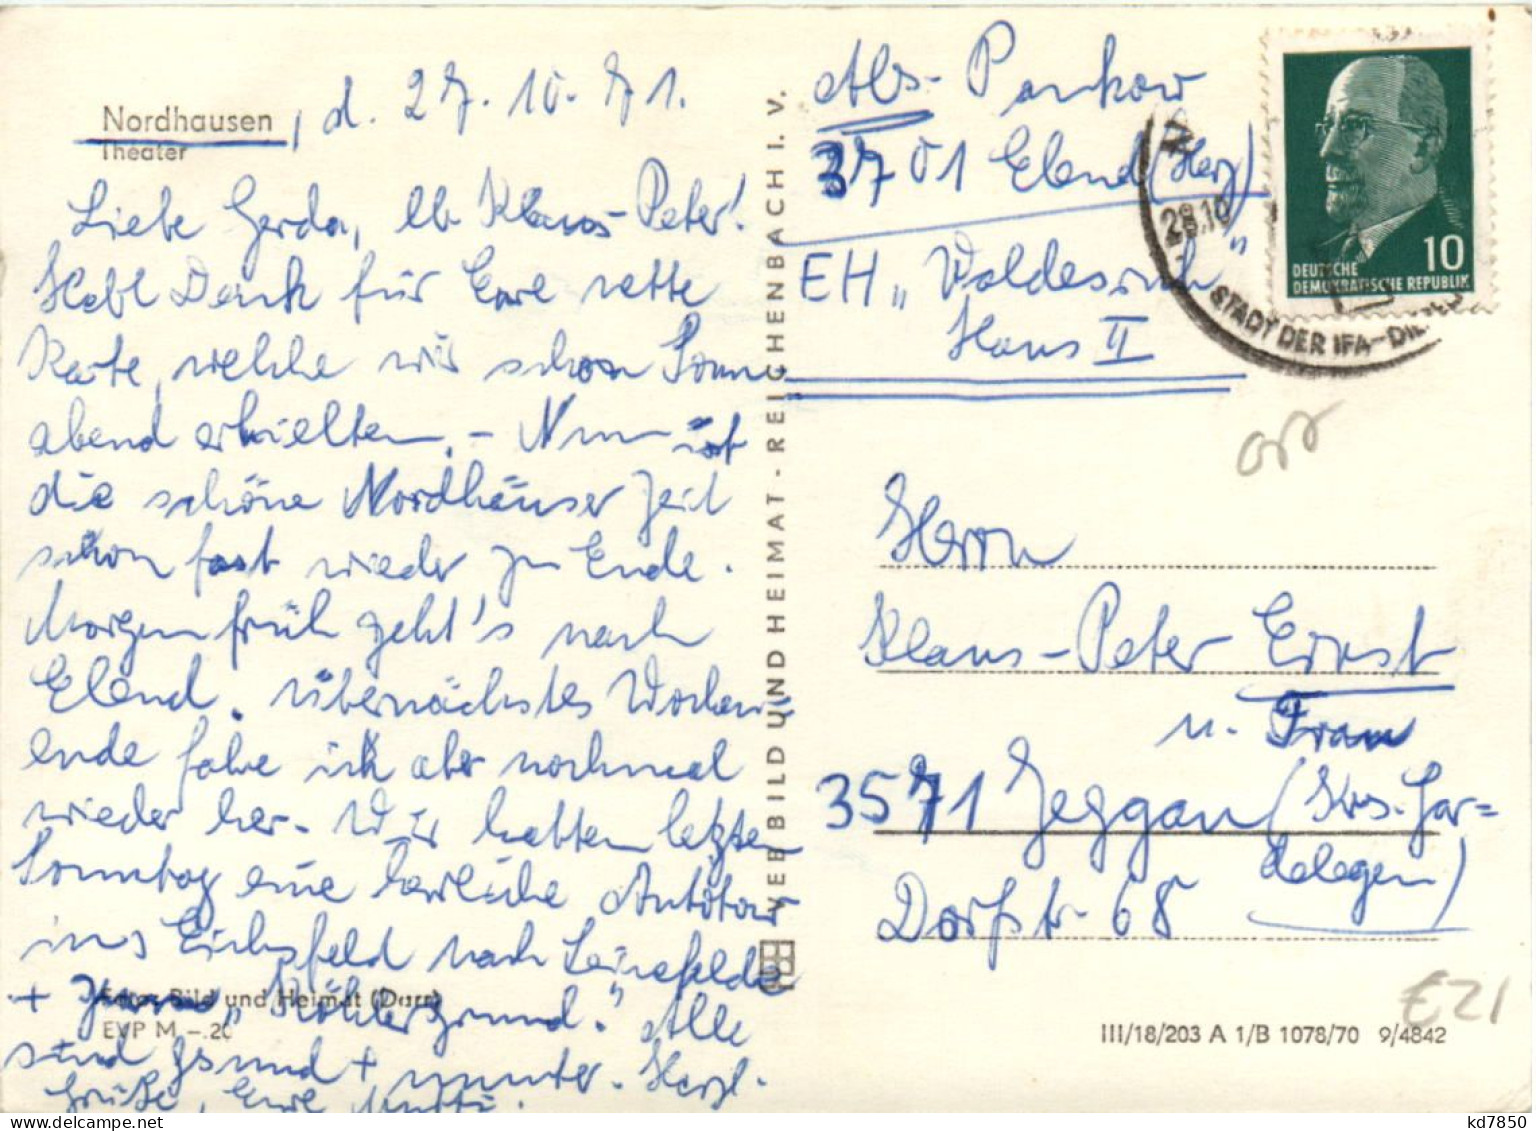 Nordhausen, d. 27.10.71.
Theater
Liebe Gerda, lb. Klaus-Peter!
Habt Dank für Eure nette
Karte, welche wir schon Sonn
abend erhielten. - Nun ist
die schöne Nordhäuser Zeit
schon fast wieder zu Ende.
Morgen früh geht's nach
Elend. Übernächstes Wochen=
ende fahre ich aber nochmal
wieder her. Wir hatten letzten
Sonntag eine herrliche Autotour
ins Eichsfeld nach Leinefelde
+ "Köhlergrund." Alle
sind gesund + munter. Herzl.
Grüße, Eure Mutti.
Foto: Bild und Heimat (Darr)
EVP M -.20
VEB BILD UND HEIMAT - REICHENBACH I. V.
Abs. Pankow
3701 Elend (Harz)
EH "Waldesruh"
Haus II
28.10
STADT DER IFA-DIE
10
DEUTSCHE
DEMOKRATISCHE REPUBLIK
Herrn
Klaus-Peter Ernst
u. Frau
3571 Jeggau (Krs. Gar=
delegen)
Dorfstr. 68
III/18/203 A 1/B 1078/70 9/4842
€21
kd7850